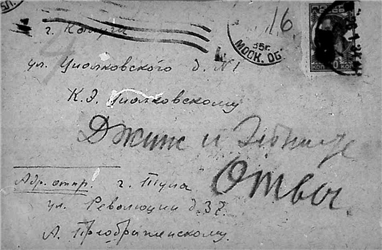 г. Калуга
ул. Циолковского д. №1
К. Э. Циолковскому
16
35г.
МОСК. ОБ
Джинс и
Ответ.
Адр. отпр. г. Тула
ул. Революции д. 37.
А. Преображенскому